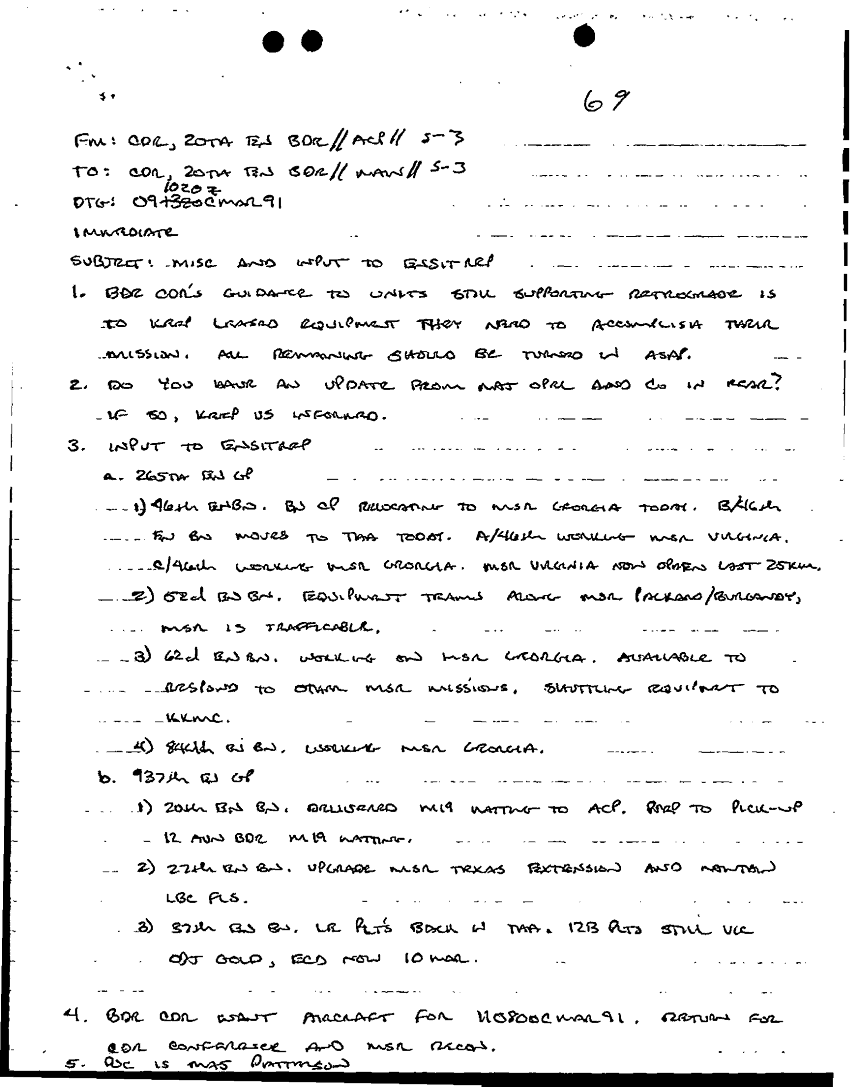 69
FM: CDR, 20TH EN BDE//ACP// S-3
TO: CDR, 20TH EN BDE//MAIN// S-3
1020Z
DTG: 091320CMAR91
IMMEDIATE
SUBJECT: MISC AND INPUT TO ENSITREP
1. BDE CDR'S GUIDANCE TO UNITS STILL SUPPORTING RETROGRADE IS
TO KEEP LEASED EQUIPMENT THEY NEED TO ACCOMPLISH THEIR
MISSION. ALL REMAINING SHOULD BE TURNED IN ASAP.
2. DO YOU HAVE AN UPDATE FROM MAT OPRL AND CO IN REAR?
IF SO, KEEP US INFORMED.
3. INPUT TO ENSITREP
a. 265TH EN GP
1) 46th ENBN. BN CP RELOCATING TO MSR GEORGIA TODAY. B/46th
EN BN MOVES TO TAA TODAY. A/46th WORKING MSR VIRGINIA.
C/46th WORKING MSR GEORGIA. MSR VIRGINIA NOW OPEN LAST 25KM.
2) 52d EN BN. EQUIPMENT TEAMS ALONG MSR PACKARD/BURGANDY,
MSR IS TRAFFICABLE.
3) 62d EN BN. WORKING ON MSR GEORGIA. AVAILABLE TO
RESPOND TO OTHER MSR MISSIONS. SHUTTLING EQUIPMENT TO
KKMC.
4) 84th EN BN. WORKING MSR GEORGIA.
b. 937th EN GP
1) 20th EN BN. DELIVERED M19 MATTING TO ACP. PREP TO PICK-UP
12 AVN BDE M19 MATTING.
2) 27th EN BN. UPGRADE MSR TEXAS EXTENSION AND MAINTAIN
LBC FLS.
3) 37th EN BN. LE PLT'S BACK IN TAA. 12B PLTS STILL VIC
OBJ GOLD, ECD NOW 10 MAR.
4. BDE CDR WANT AIRCRAFT FOR 110800CMAR91. RETURN FOR
CDR CONFERENCE AND MSR RECON.
5. POC IS MAJ PATTERSON